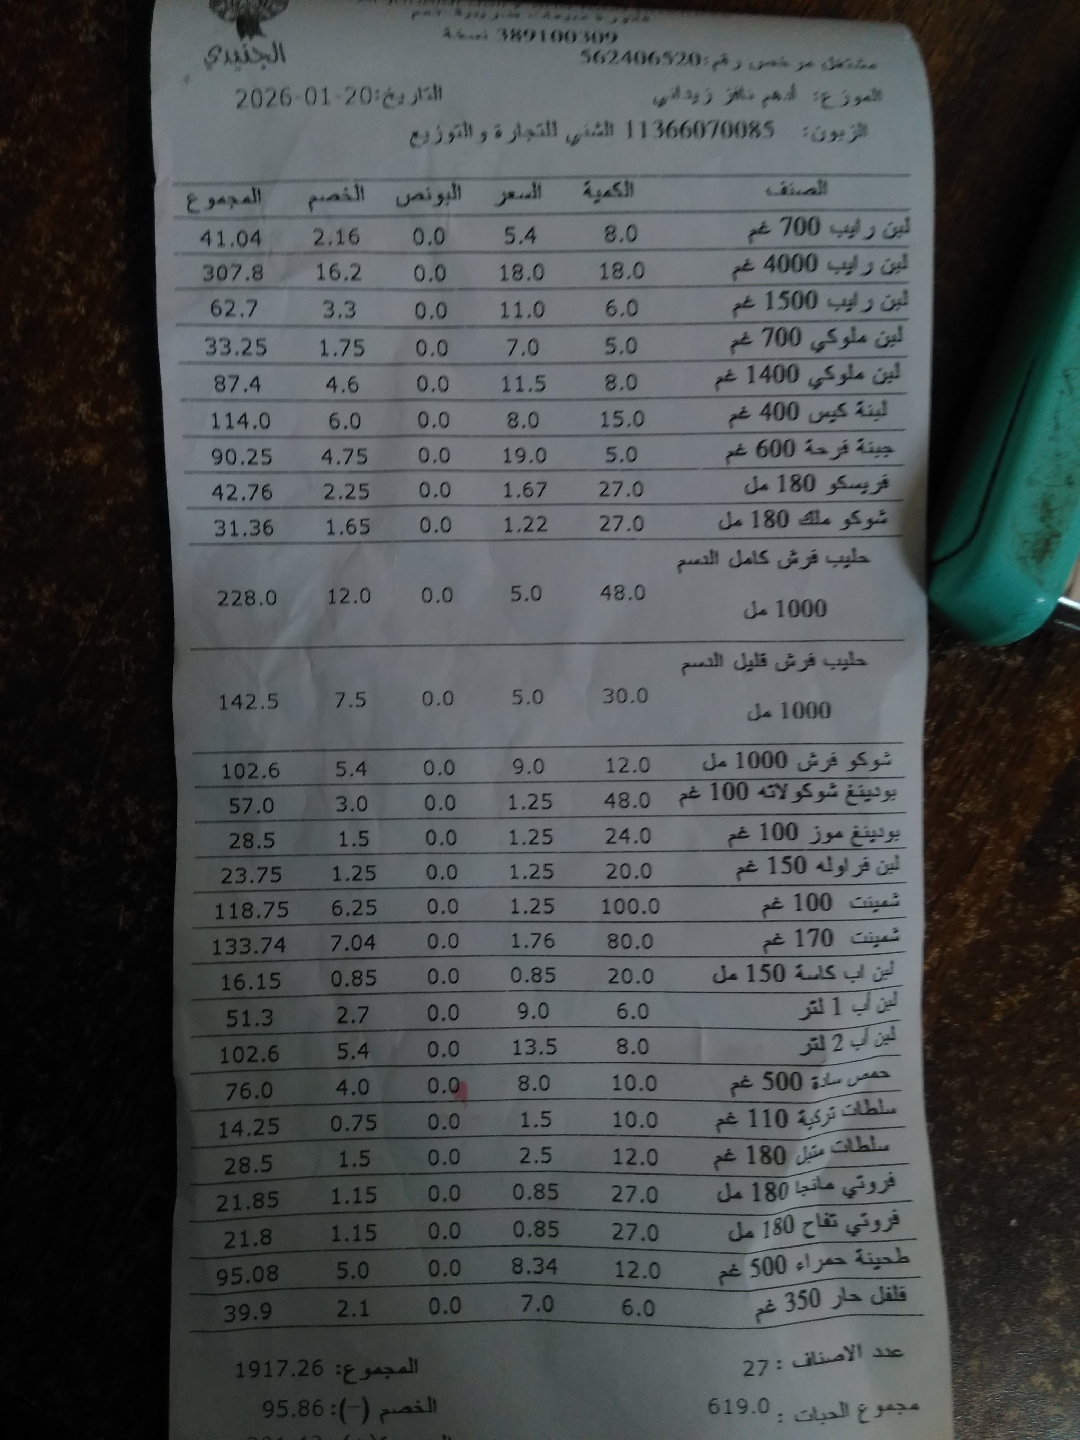 الجنيدي
389100309 نسخة
مشتغل مرخص رقم:562406520
الموزع: أدهم نافز زيداني التاريخ:20-01-2026
الزبون: 11366070085 الشني للتجارة والتوزيع
الصنف الكمية السعر البونص الخصم المجموع
لبن رايب 700 غم 8.0 5.4 0.0 2.16 41.04
لبن رايب 4000 غم 18.0 18.0 0.0 16.2 307.8
لبن رايب 1500 غم 6.0 11.0 0.0 3.3 62.7
لبن ملوكي 700 غم 5.0 7.0 0.0 1.75 33.25
لبن ملوكي 1400 غم 8.0 11.5 0.0 4.6 87.4
لبنة كيس 400 غم 15.0 8.0 0.0 6.0 114.0
جبنة فرحة 600 غم 5.0 19.0 0.0 4.75 90.25
فريسكو 180 مل 27.0 1.67 0.0 2.25 42.76
شوكو ملك 180 مل 27.0 1.22 0.0 1.65 31.36
حليب فرش كامل الدسم
1000 مل 48.0 5.0 0.0 12.0 228.0
حليب فرش قليل الدسم
1000 مل 30.0 5.0 0.0 7.5 142.5
شوكو فرش 1000 مل 12.0 9.0 0.0 5.4 102.6
بودينغ شوكولاته 100 غم 48.0 1.25 0.0 3.0 57.0
بودينغ موز 100 غم 24.0 1.25 0.0 1.5 28.5
لبن فراوله 150 غم 20.0 1.25 0.0 1.25 23.75
شمينت 100 غم 100.0 1.25 0.0 6.25 118.75
شمينت 170 غم 80.0 1.76 0.0 7.04 133.74
لبن اب كاسة 150 مل 20.0 0.85 0.0 0.85 16.15
لبن أب 1 لتر 6.0 9.0 0.0 2.7 51.3
لبن أب 2 لتر 8.0 13.5 0.0 5.4 102.6
حمص سادة 500 غم 10.0 8.0 0.0 4.0 76.0
سلطات تركية 110 غم 10.0 1.5 0.0 0.75 14.25
سلطات متبل 180 غم 12.0 2.5 0.0 1.5 28.5
فروتي مانجا 180 مل 27.0 0.85 0.0 1.15 21.85
فروتي تفاح 180 مل 27.0 0.85 0.0 1.15 21.8
طحينة حمراء 500 غم 12.0 8.34 0.0 5.0 95.08
فلفل حار 350 غم 6.0 7.0 0.0 2.1 39.9
عدد الاصناف : 27 المجموع: 1917.26
مجموع الحبات : 619.0 الخصم (-): 95.86